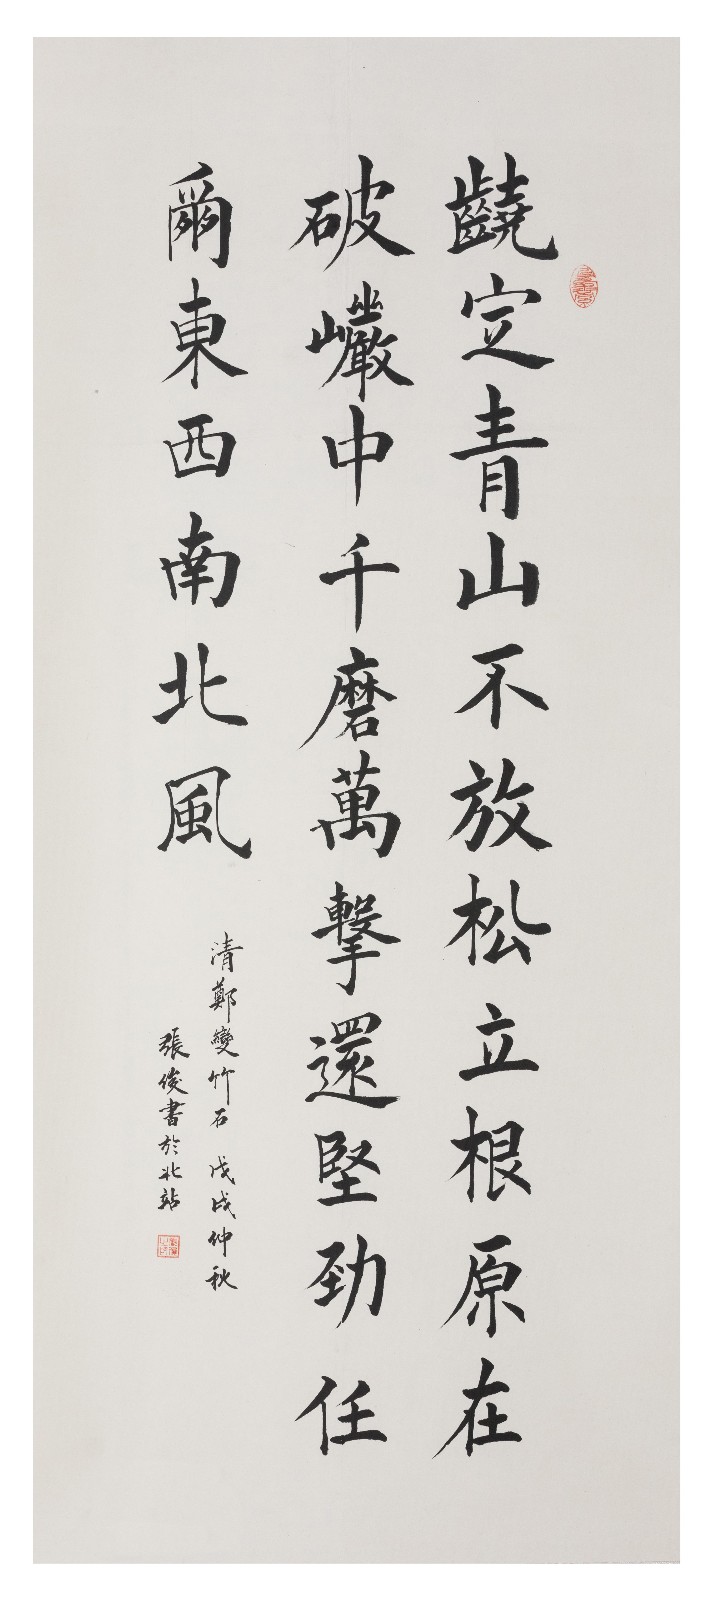 齩定青山不放松立根原在
破巗中千磨萬擊還堅勁任
爾東西南北風
清鄭燮竹石 戊戌仲秋
張俊書於北站